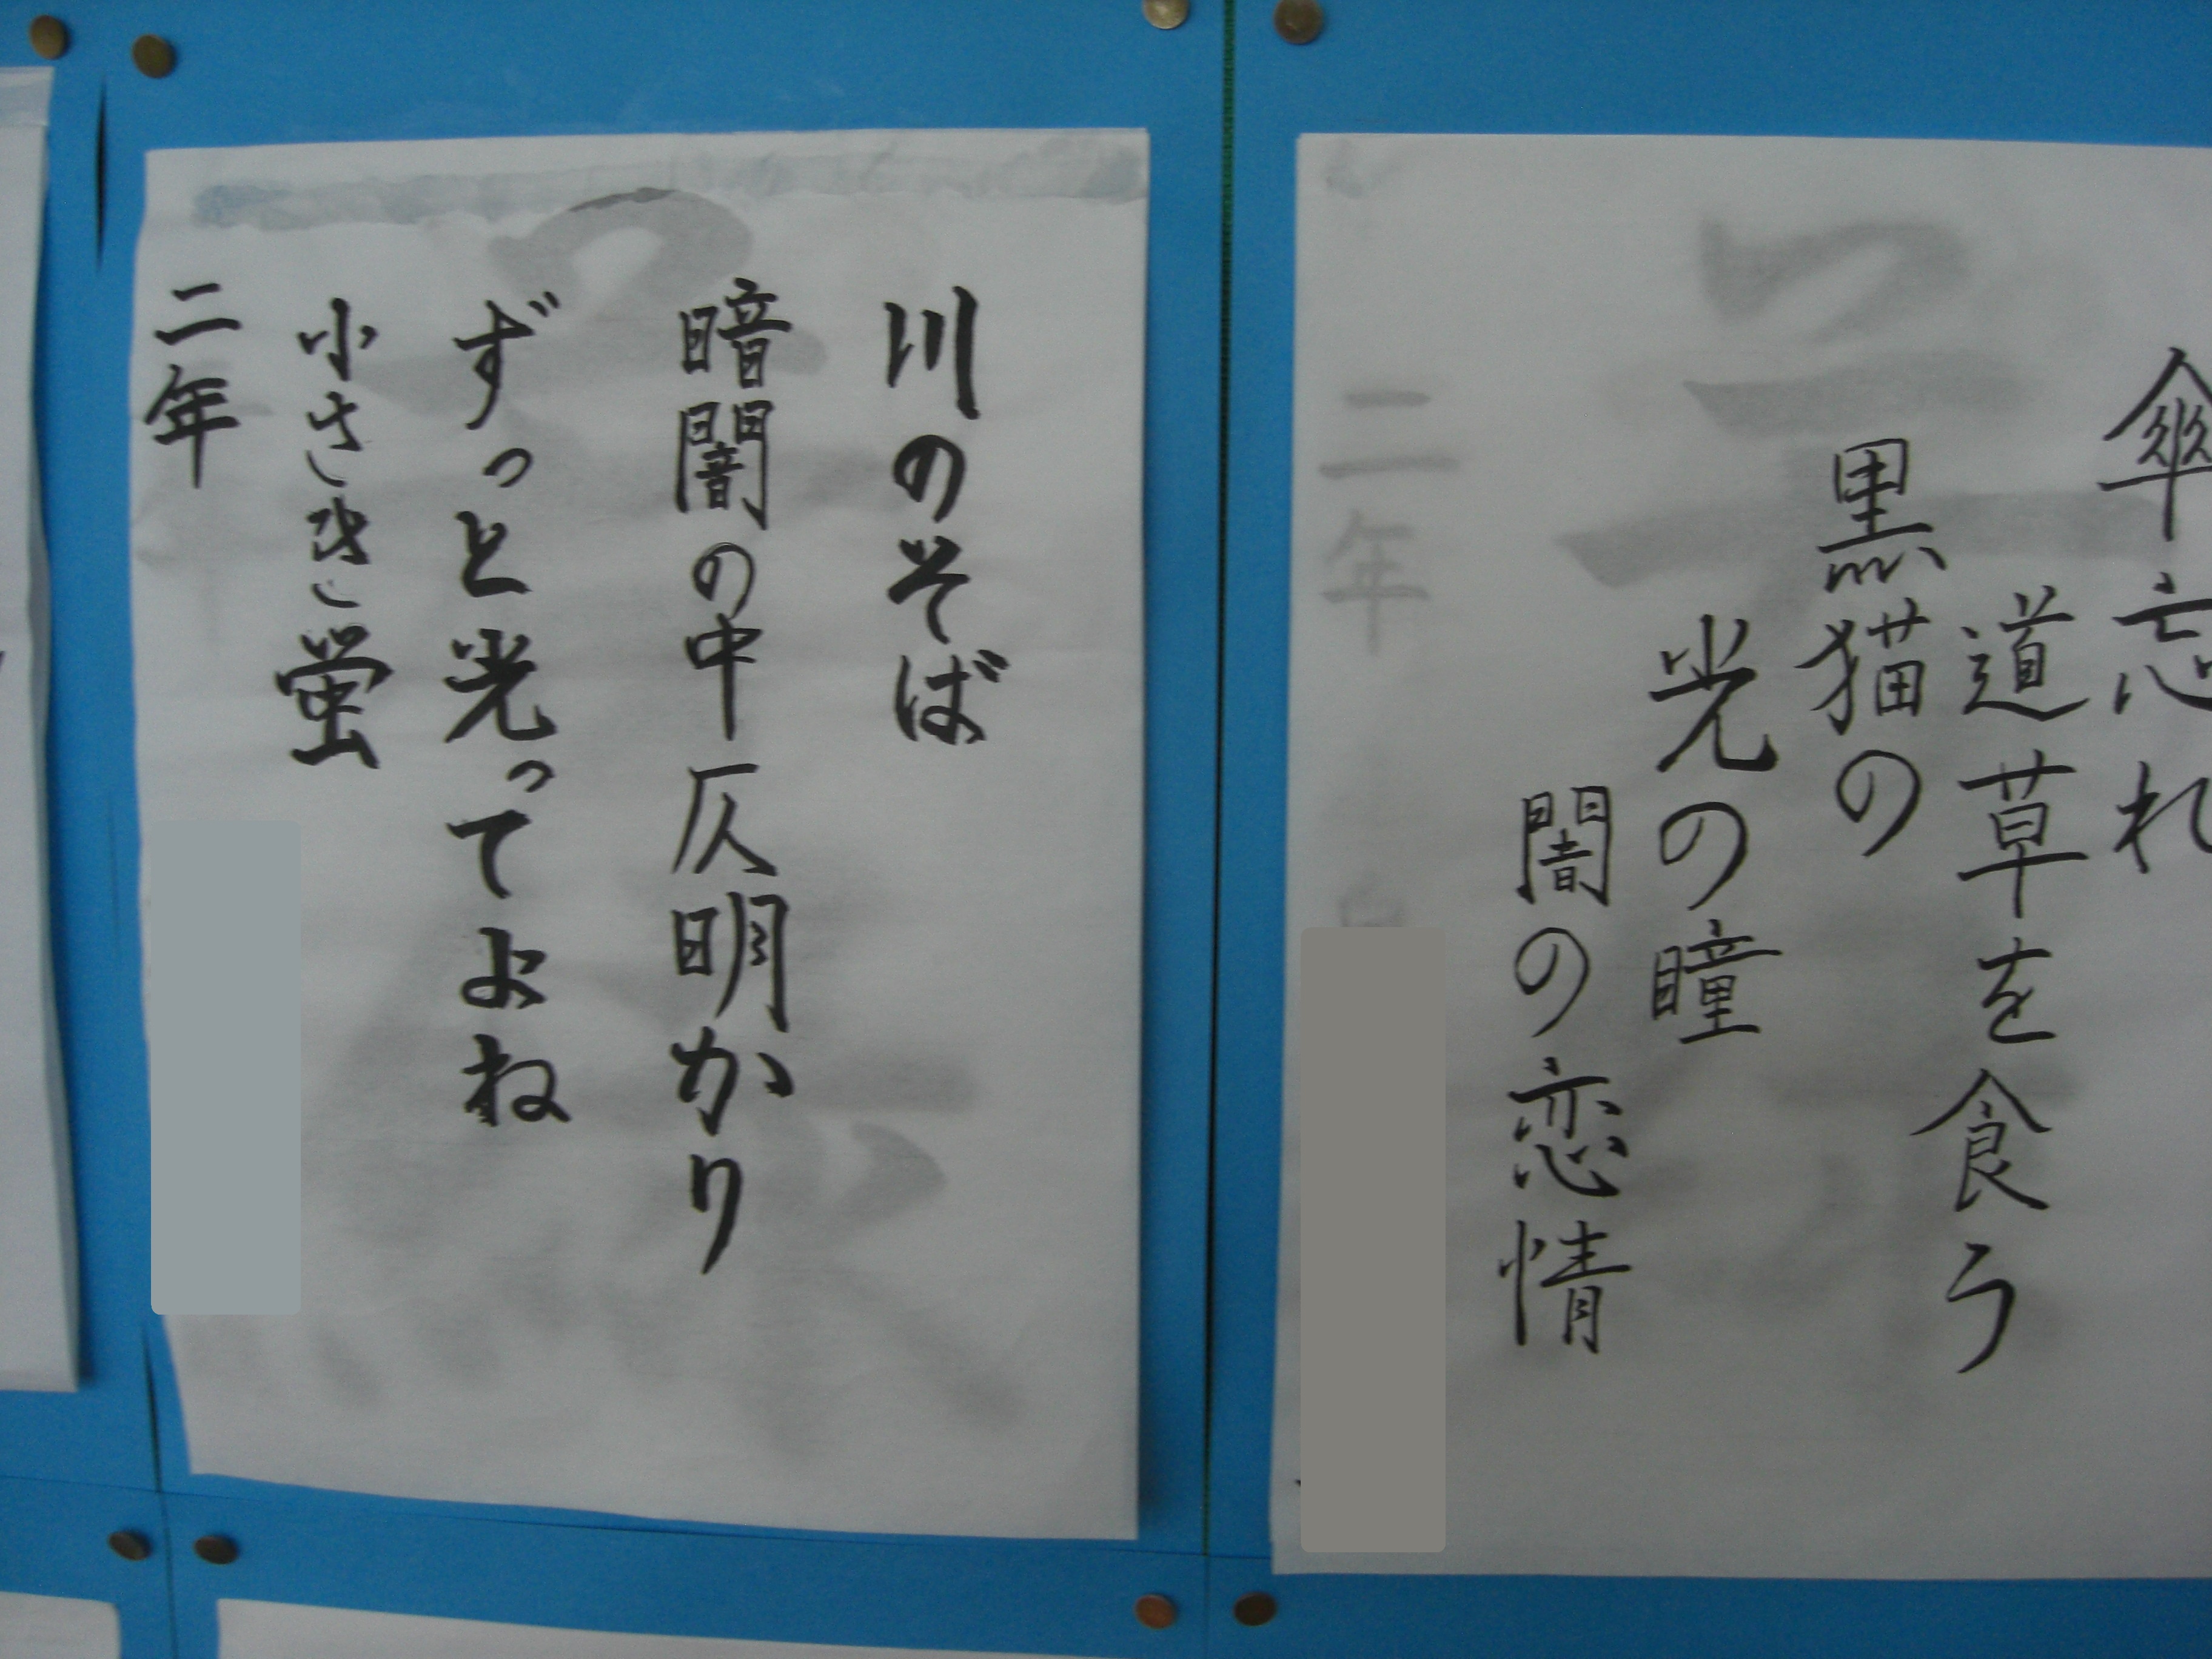 傘忘れ
道草を食う
黒猫の
光の瞳
闇の恋情
二年
川のそば
暗闇の中仄明かり
ずっと光ってよね
小さき蛍
二年